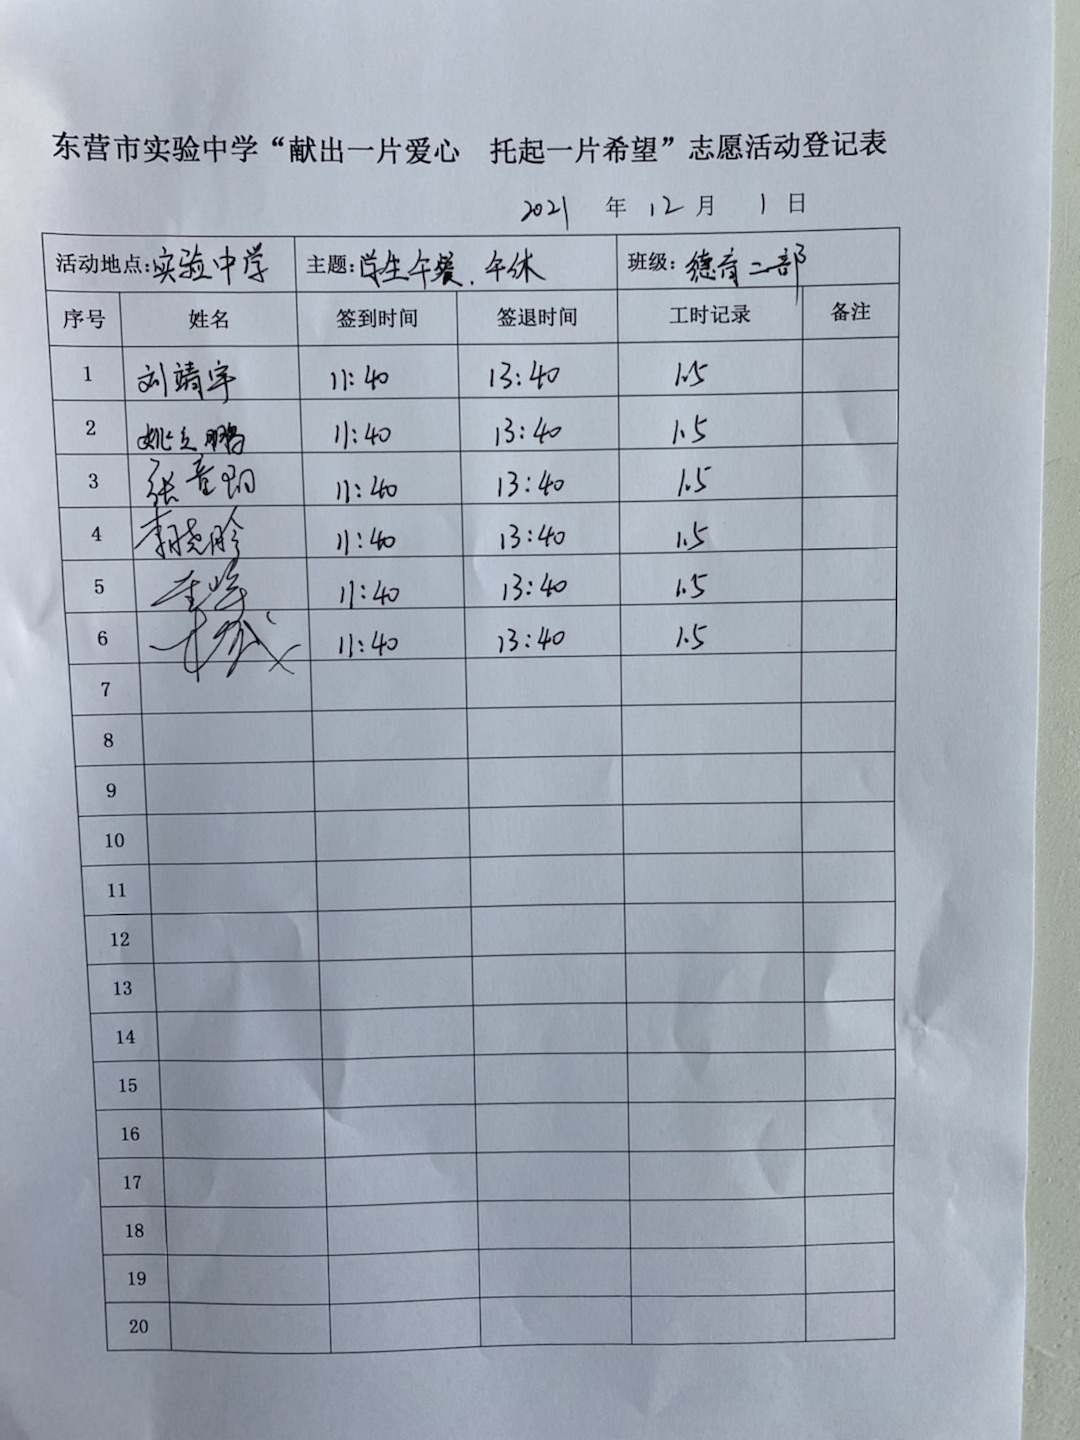 东营市实验中学“献出一片爱心 托起一片希望”志愿活动登记表
2021 年 12 月 1 日
活动地点:实验中学 主题:学生午餐、午休 班级:德育二部
序号 姓名 签到时间 签退时间 工时记录 备注
1 刘靖宇 11:40 13:40 1.5
2 姚立鹏 11:40 13:40 1.5
3 张 11:40 13:40 1.5
4 李晓 11:40 13:40 1.5
5 11:40 13:40 1.5
6 11:40 13:40 1.5
7
8
9
10
11
12
13
14
15
16
17
18
19
20